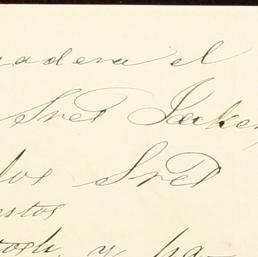 adera el
Sres Jecker,
los Sres
estos
toch, y ha-